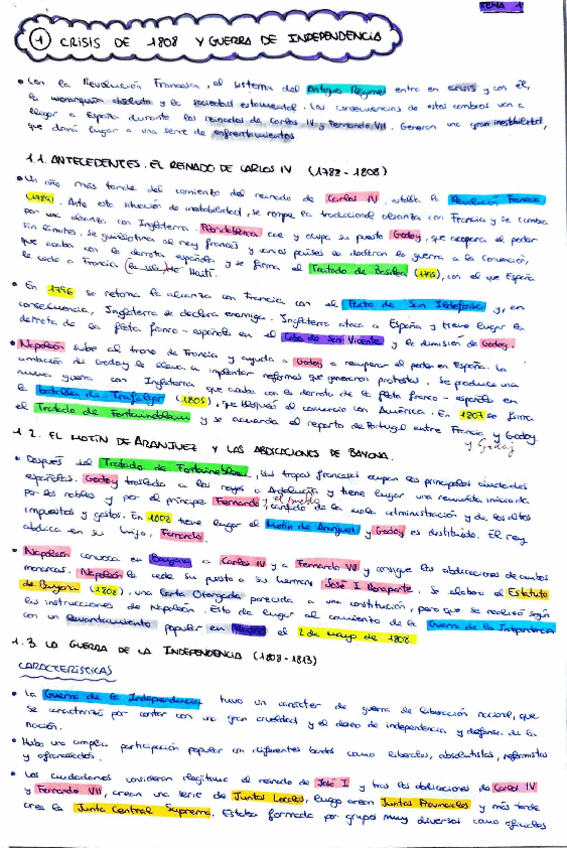 TEMA 1
1 CRISIS DE 1808 Y GUERRA DE INDEPENDENCIA
• Con la Revolución Francesa, el sistema del Antiguo Régimen entra en crisis y con él,
la monarquía absoluta y la sociedad estamental. Las consecuencias de estos cambios van a
llegar a España durante los reinados de Carlos IV y Fernando VII. Generan una gran inestabilidad,
que dará lugar a una serie de enfrentamientos
1.1. ANTECEDENTES. EL REINADO DE CARLOS IV (1788-1808)
• Un año más tarde del comienzo del reinado de Carlos IV, estalla la Revolución Francesa
(1789). Ante esta situación de inestabilidad, se rompe la tradicional alianza con Francia y se cambia
por una alianza con Inglaterra. Floridablanca cae y ocupa su puesto Godoy, que acapara el poder
sin límites. Se guillotina al rey francés y varios países le declaran la guerra a la Convención,
que acaba con la derrota española y se firma el Tratado de Basilea (1795), con el que España
le cede a Francia Haití.
• En 1796 se retoma la alianza con Francia con el Pacto de San Ildefonso y, en
consecuencia, Inglaterra se declara enemiga. Inglaterra ataca a España y tiene lugar la
derrota de la flota franco-española en el Cabo de San Vicente y la dimisión de Godoy.
• Napoleón sube al trono de Francia y ayuda a Godoy a recuperar el poder en España. La
ambición de Godoy le lleva a implantar reformas que generan protestas. Se produce una
nueva guerra con Inglaterra que acaba con la derrota de la flota franco-española en
la batalla de Trafalgar (1805), que bloqueó el comercio con América. En 1807 se firma
el Tratado de Fontainebleau y se acuerda el reparto de Portugal entre Francia y Godoy.
y Godoy
1.2. EL MOTÍN DE ARANJUEZ Y LAS ABDICACIONES DE BAYONA.
• Después del Tratado de Fontainebleau, las tropas francesas ocupan las principales ciudades
españolas. Godoy traslada a los reyes a Andalucía y tiene lugar una revuelta iniciada
por los nobles y por el príncipe Fernando, el pueblo, de la mala administración y de los altos
impuestos y gastos. En 1808 tiene lugar el Motín de Aranjuez y Godoy es destituido. El rey
abdica en su hijo, Fernando.
• Napoleón convoca en Bayona a Carlos IV y a Fernando VII y consigue las abdicaciones de ambos
monarcas. Napoleón le cede su puesto a su hermano José I Bonaparte. Se elabora el Estatuto
de Bayona (1808), una Carta Otorgada parecida a una constitución, pero que se realizó según
las instrucciones de Napoleón. Esto da lugar al comienzo de la Guerra de la Independencia
con un levantamiento popular en Madrid el 2 de mayo de 1808.
1.3. LA GUERRA DE LA INDEPENDENCIA (1808-1813)
CARACTERÍSTICAS
• La Guerra de la Independencia tuvo un carácter de guerra de liberación nacional, que
se caracterizó por contar con una gran crueldad y el deseo de independencia y defensa de la
nación.
• Hubo una amplia participación popular con diferentes bandos como liberales, absolutistas, reformistas
y afrancesados.
• Los ciudadanos consideran ilegítimo el reinado de José I y tras las abdicaciones de Carlos IV
y Fernando VII, crean una serie de Juntas Locales, luego crean Juntas Provinciales y más tarde
crea la Junta Central Suprema. Estaba formada por grupos muy diversos como oficiales